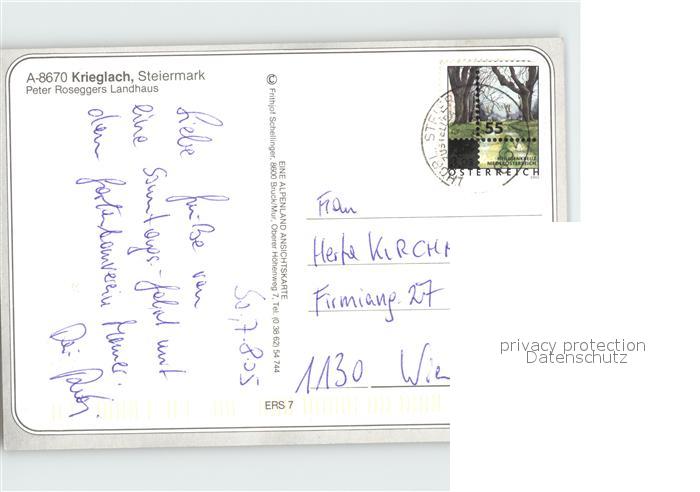 A-8670 Krieglach, Steiermark
Peter Roseggers Landhaus
Liebe Grüße von
einer Sonntags-fahrt mit
dem Gartenbauverein
Dein
So, 7.8.05
© Frithjof Schellinger, 8600 Bruck/Mur, Oberer Höhenweg 7, Tel. (0 38 62) 54 744
EINE ALPENLAND ANSICHTSKARTE
ERS 7
55
HEILIGENKREUZ
NIEDERÖSTERREICH
ÖSTERREICH
Frau
Herta KIRCH
Firmiang. 27
1130 Wien
privacy protection
Datenschutz